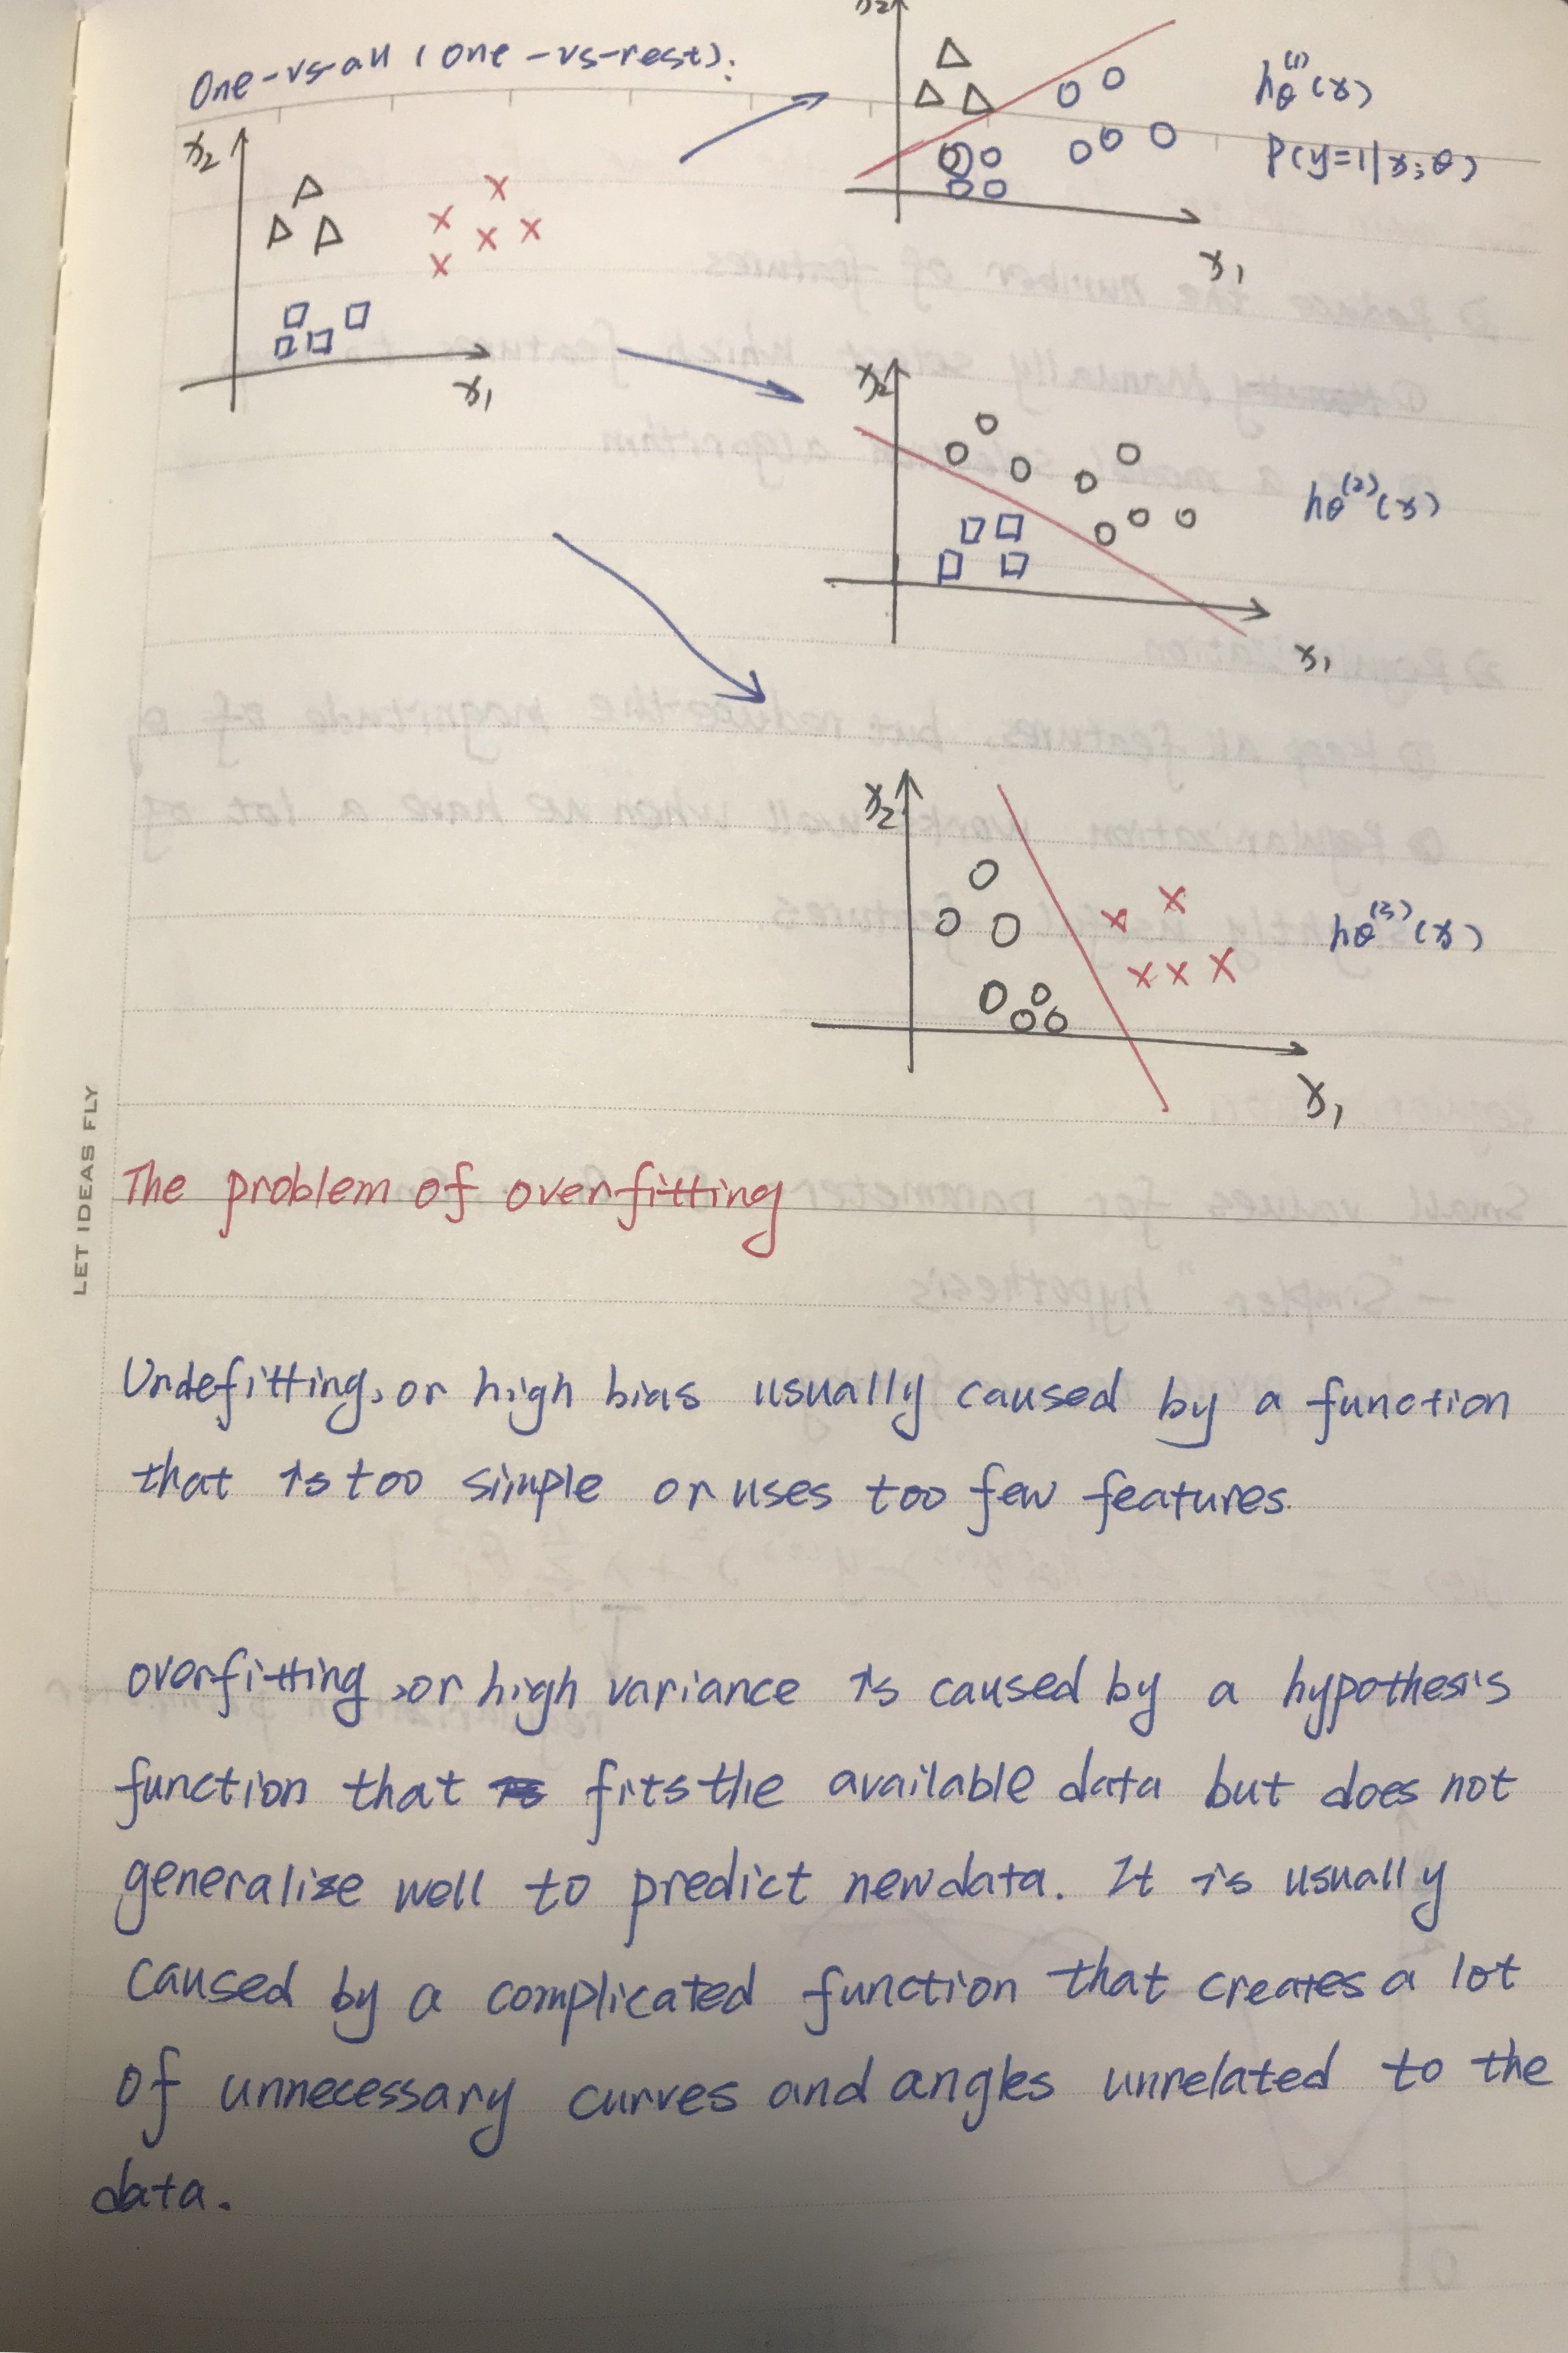 One-vs-all (One-vs-rest):
x₂
x₁
x₂
x₁
hθ⁽¹⁾(x)
P(y=1|x;θ)
x₂
x₁
hθ⁽²⁾(x)
x₂
x₁
hθ⁽³⁾(x)
LET IDEAS FLY
The problem of overfitting
Undefitting, or high bias usually caused by a function
that is too simple or uses too few features.
overfitting, or high variance is caused by a hypothesis
function that fits the available data but does not
generalize well to predict new data. It is usually
caused by a complicated function that creates a lot
of unnecessary curves and angles unrelated to the
data.